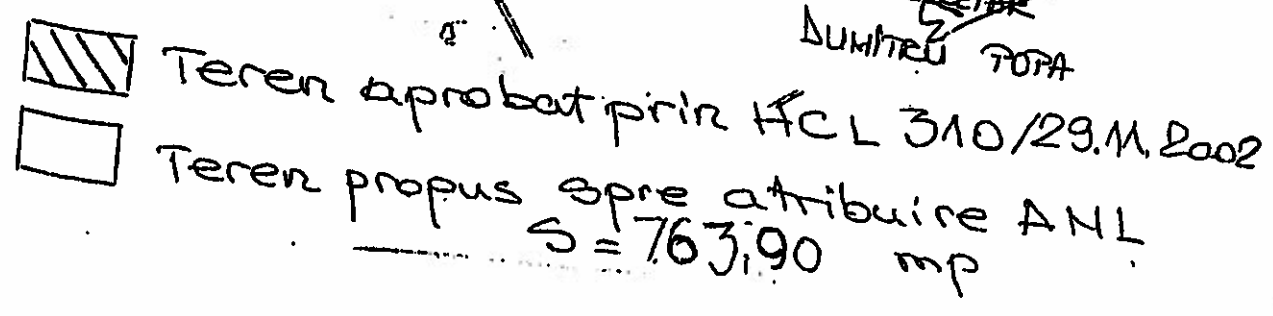 DUMITRU POPA
Teren aprobat prin HCL 310/29.11.2002
Teren propus spre atribuire ANL
S = 763,90 mp